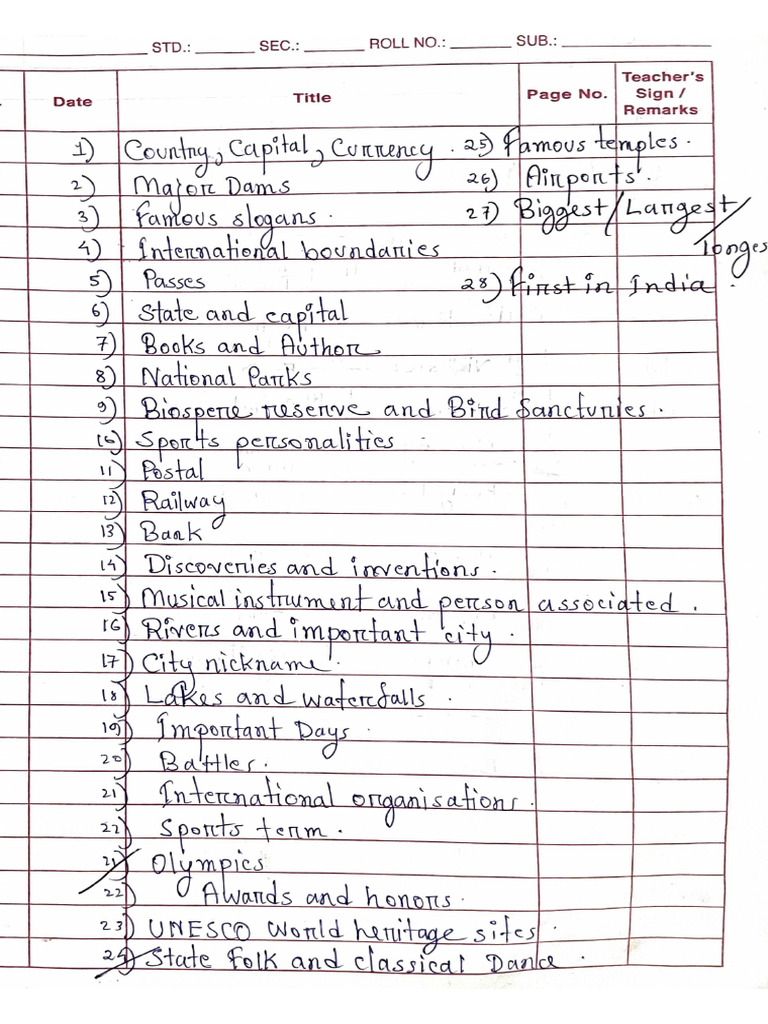 STD.: SEC.: ROLL NO.: SUB.:
Date Title Page No. Teacher's Sign / Remarks
1) Country, Capital, Currency. 25) Famous temples.
2) Major Dams 26) Airports.
3) Famous slogans. 27) Biggest/Largest/
longes
4) International boundaries
5) Passes 28) First in India.
6) State and capital
7) Books and Author
8) National Parks
9) Biospere reserve and Bird Sancturies.
10) Sports personalities
11) Postal
12) Railway
13) Bank
14) Discoveries and inventions.
15) Musical instrument and person associated.
16) Rivers and important city.
17) City nickname.
18) Lakes and waterfalls.
19) Important Days.
20) Battles.
21) International organisations.
22) Sports term.
21) Olympics
22) Awards and honors.
23) UNESCO World heritage sites.
24) State Folk and classical Dance.